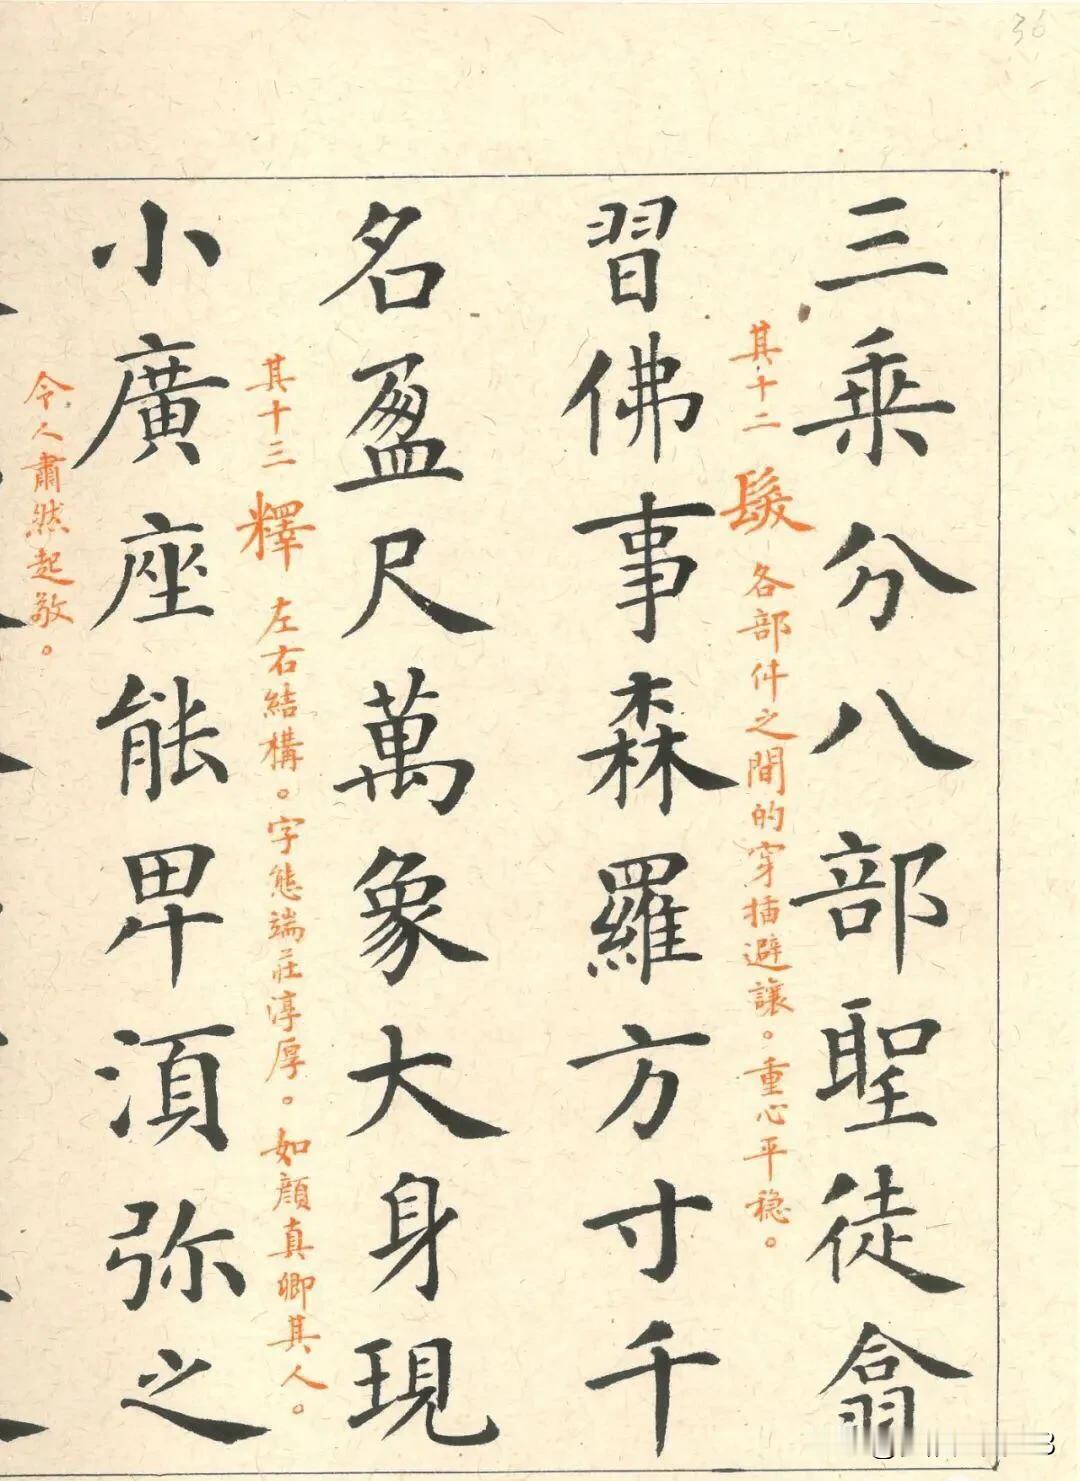 36
三乘分八部聖徒翕
其十二 髮 各部件之間的穿插避讓。重心平稳。
習佛事森羅方寸千
名盈尺萬象大身現
其十三 釋 左右結構。字態端莊淳厚。如顔真卿其人。
小廣座能卑湏弥之
令人肅然起敬。